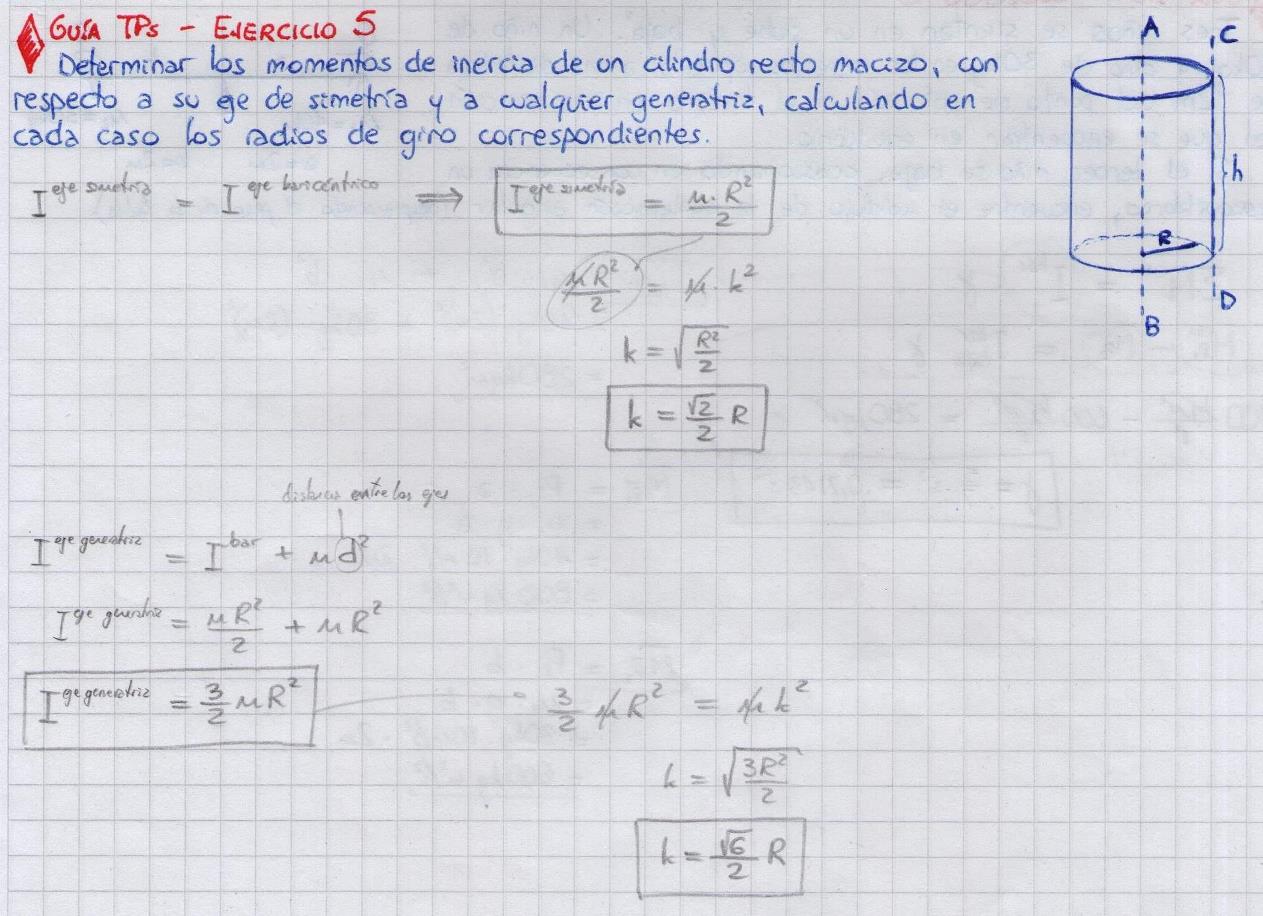 GUÍA TPs - EJERCICIO 5
Determinar los momentos de inercia de un cilindro recto macizo, con
respecto a su eje de simetría y a cualquier generatriz, calculando en
cada caso los radios de giro correspondientes.
A
C
h
R
D
B
I^eje simetría = I^eje baricéntrico ⟹ I^eje simetría = m·R²/2
mR²/2 = m·k²
k = √(R²/2)
k = √2/2 R
distancia entre los ejes
I^eje generatriz = I^bar + m d²
I^eje generatriz = mR²/2 + mR²
I^eje generatriz = 3/2 mR²
3/2 mR² = m k²
k = √(3R²/2)
k = √6/2 R